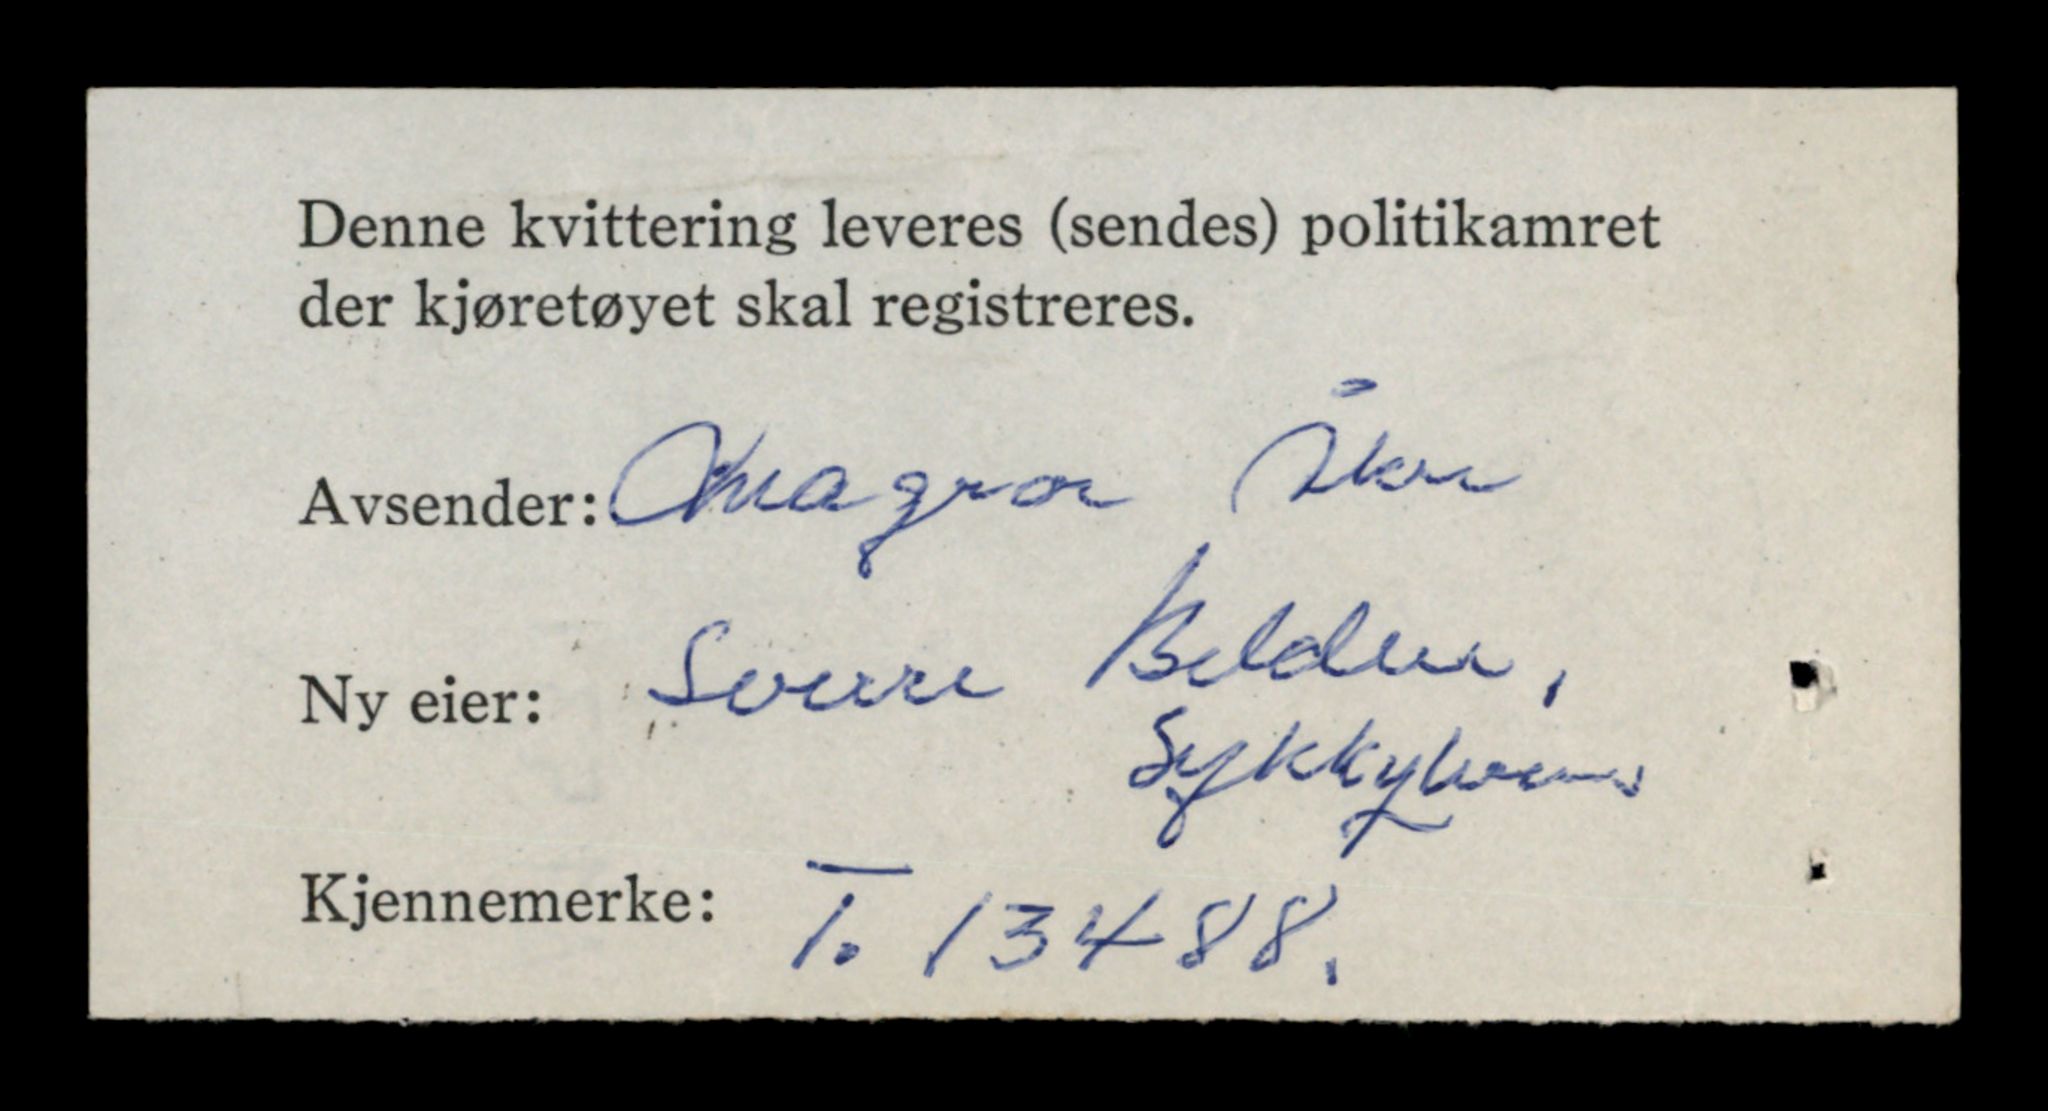 Denne kvittering leveres (sendes) politikamret
der kjøretøyet skal registreres.
Avsender: Magnar
Ny eier: Sverre
Kjennemerke: T. 13488.